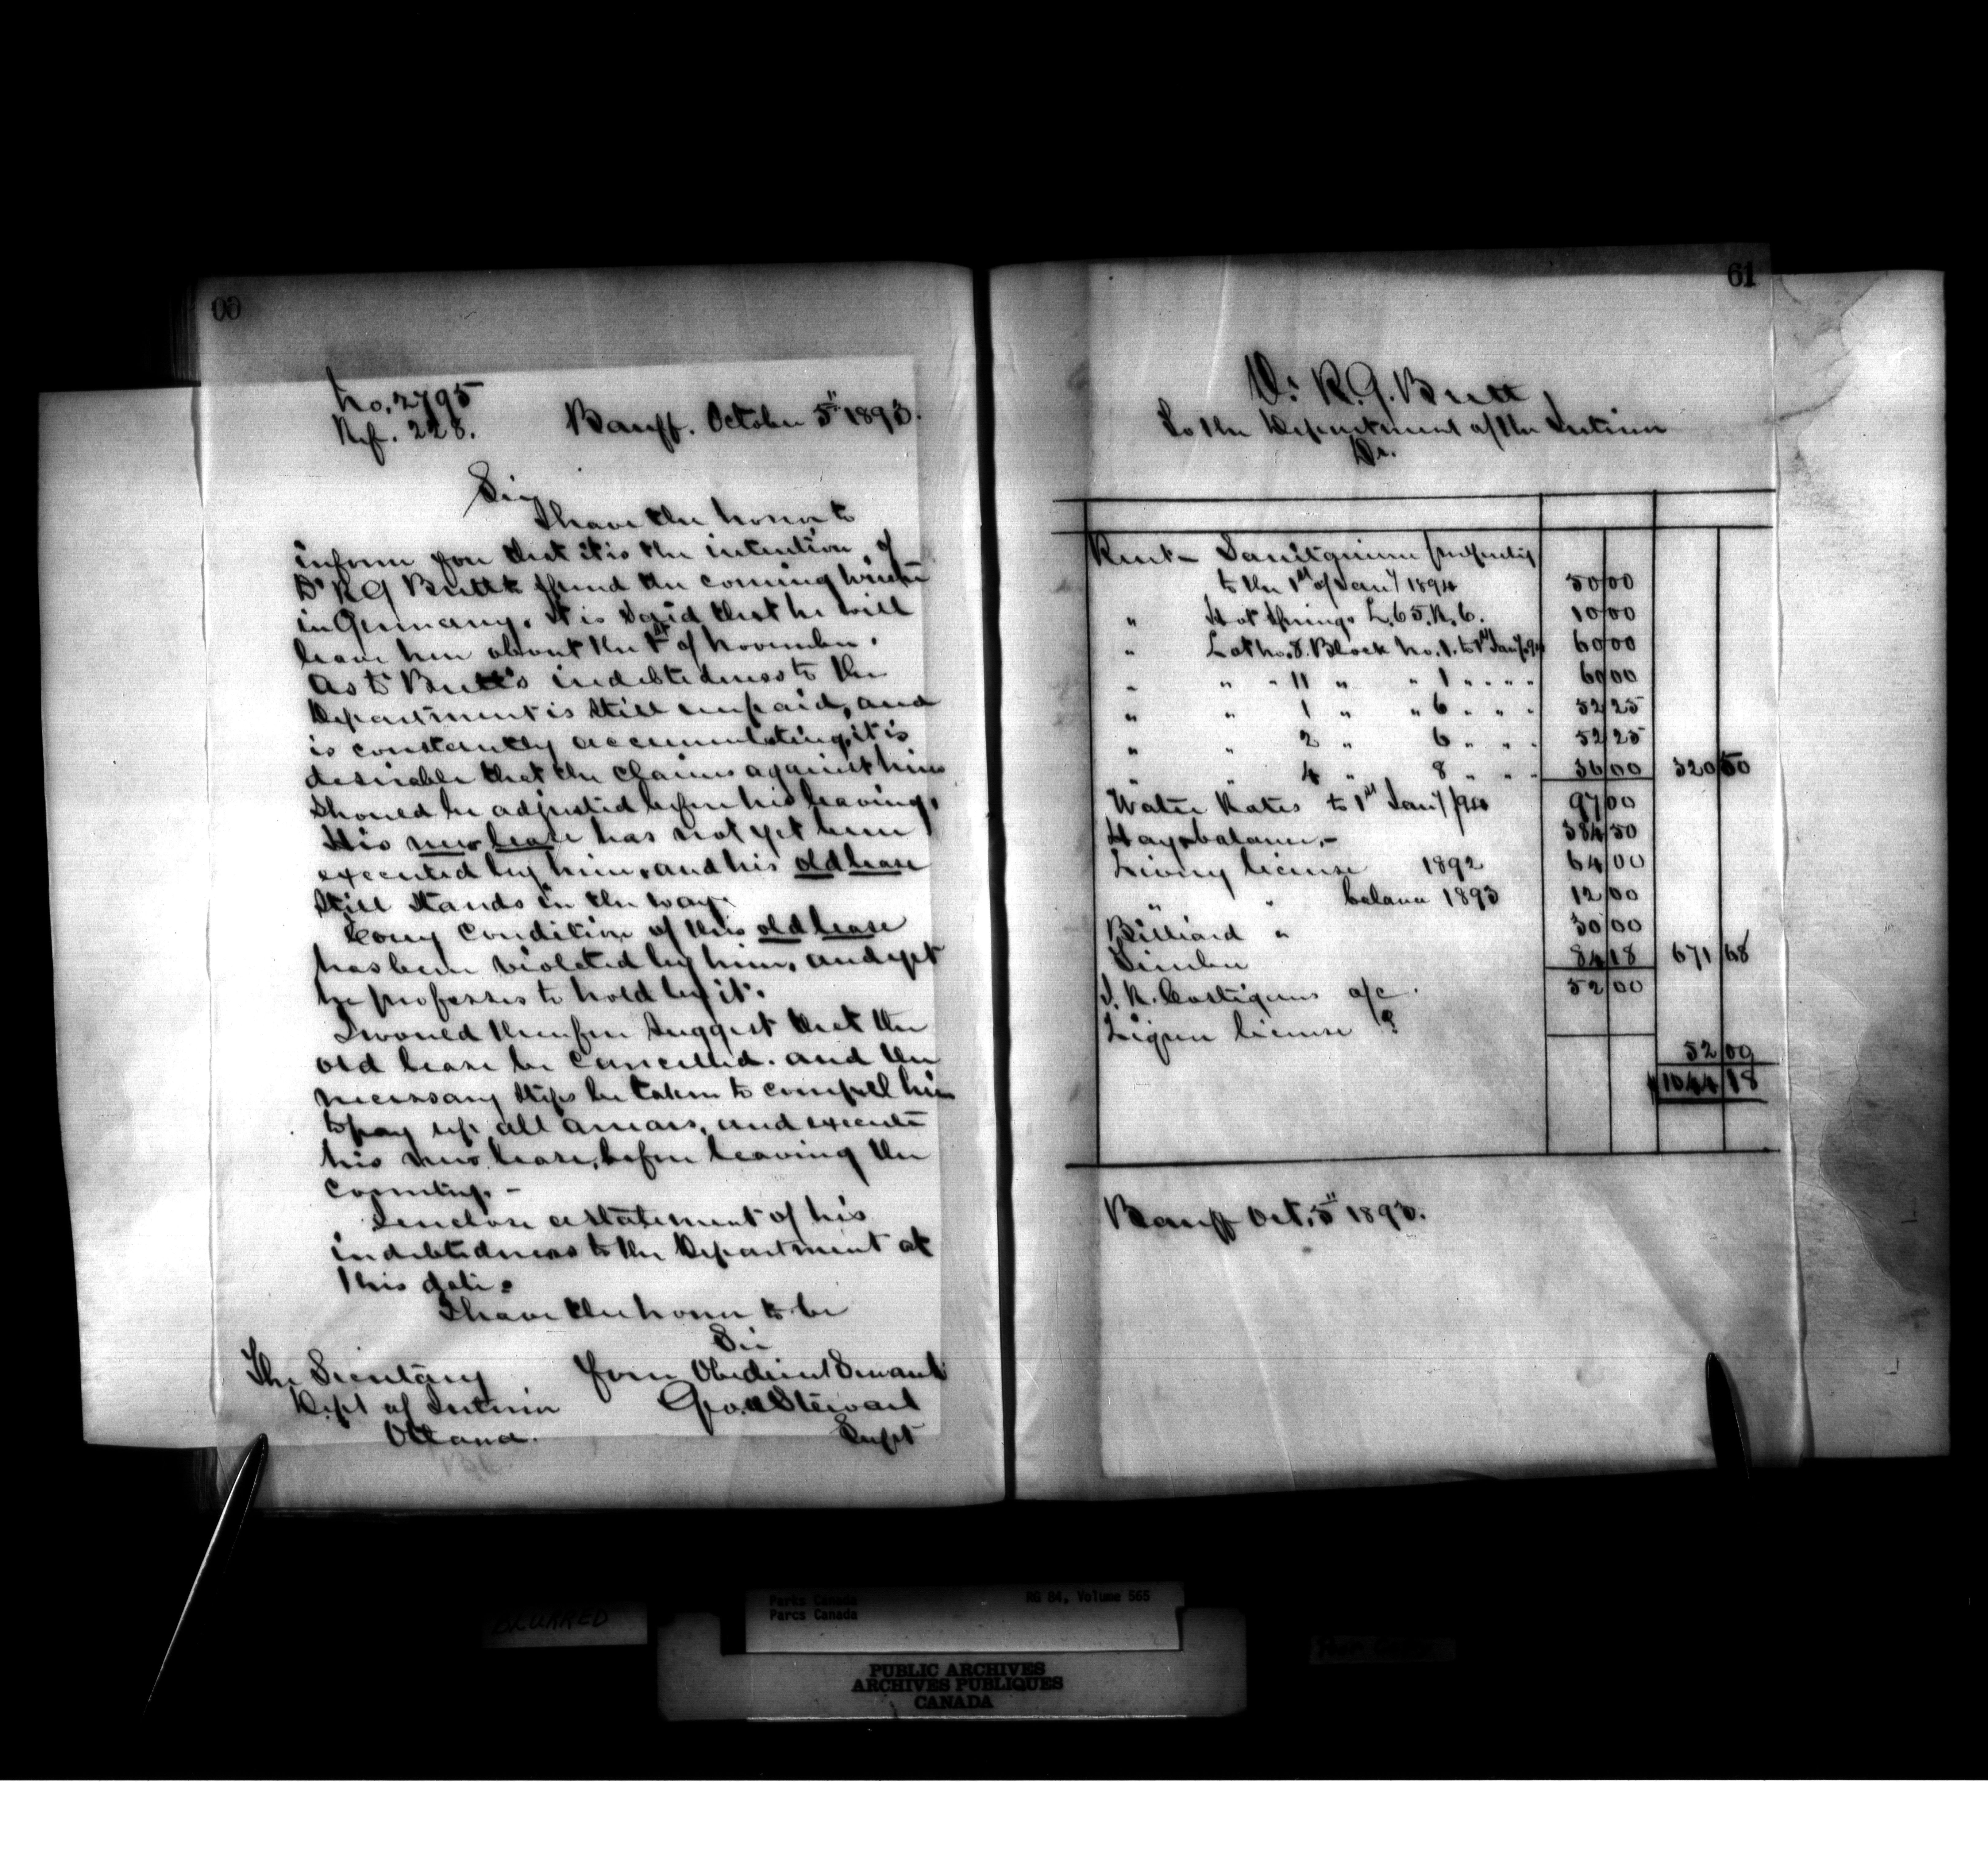 60
No. 2795
Ref. 228.
Banff. October 5" 1893.
Sir
I have the honor to
inform you that it is the intention of
Dr R G Brett to spend the coming winter
in Germany. It is said that he will
leave here about the 1st of November.
As to Brett's indebtedness to the
Department is still unpaid, and
is constantly accumulating, it is
desirable that the claims against him
should be adjusted before his leaving.
His new lease has not yet been
executed by him, and his old lease
still stands in the way.
Every condition of this old lease
has been violated by him, and yet
he professes to hold by it.
I would therefore suggest that the
old lease be cancelled. and the
necessary steps be taken to compell him
to pay up all arrears, and execute
his new lease, before leaving the
country. -
I enclose a statement of his
indebtedness to the Department at
this date.
I have the honor to be
Sir
Your Obedient Servant
Geo. A Stewart
Supt
The Secretary
Dept of Interior
Ottawa.
61
Dr R. G. Brett
To the Department of the Interior
Dr.
Rent - Sanitarium property
to the 1st of Jany 1894 50 00
" Hot Springs L. 65. R. 6. 10 00
" Lot No. 8. Block No. 1. to 1st Jany/94 60 00
" " " 11 " " 1 " " " " 60 00
" " 1 " " 6 " " " 52 25
" " 2 " 6 " " " 52 25
" " 4 " 8 " " " 36 00 320 50
Water Rates to 1st Jany/94 97 00
Hay balance. - 384 50
Livery license 1892 64 00
" " balance 1893 12 00
Billiard " 30 00
Timber 84 18 671 68
J. R. Costigans a/c. 52 00
Liquor license ?
52 00
$1044 18
Banff Oct. 5" 1893.
Parks Canada
Parcs Canada
RG 84, Volume 565
BLURRED
PUBLIC ARCHIVES
ARCHIVES PUBLIQUES
CANADA